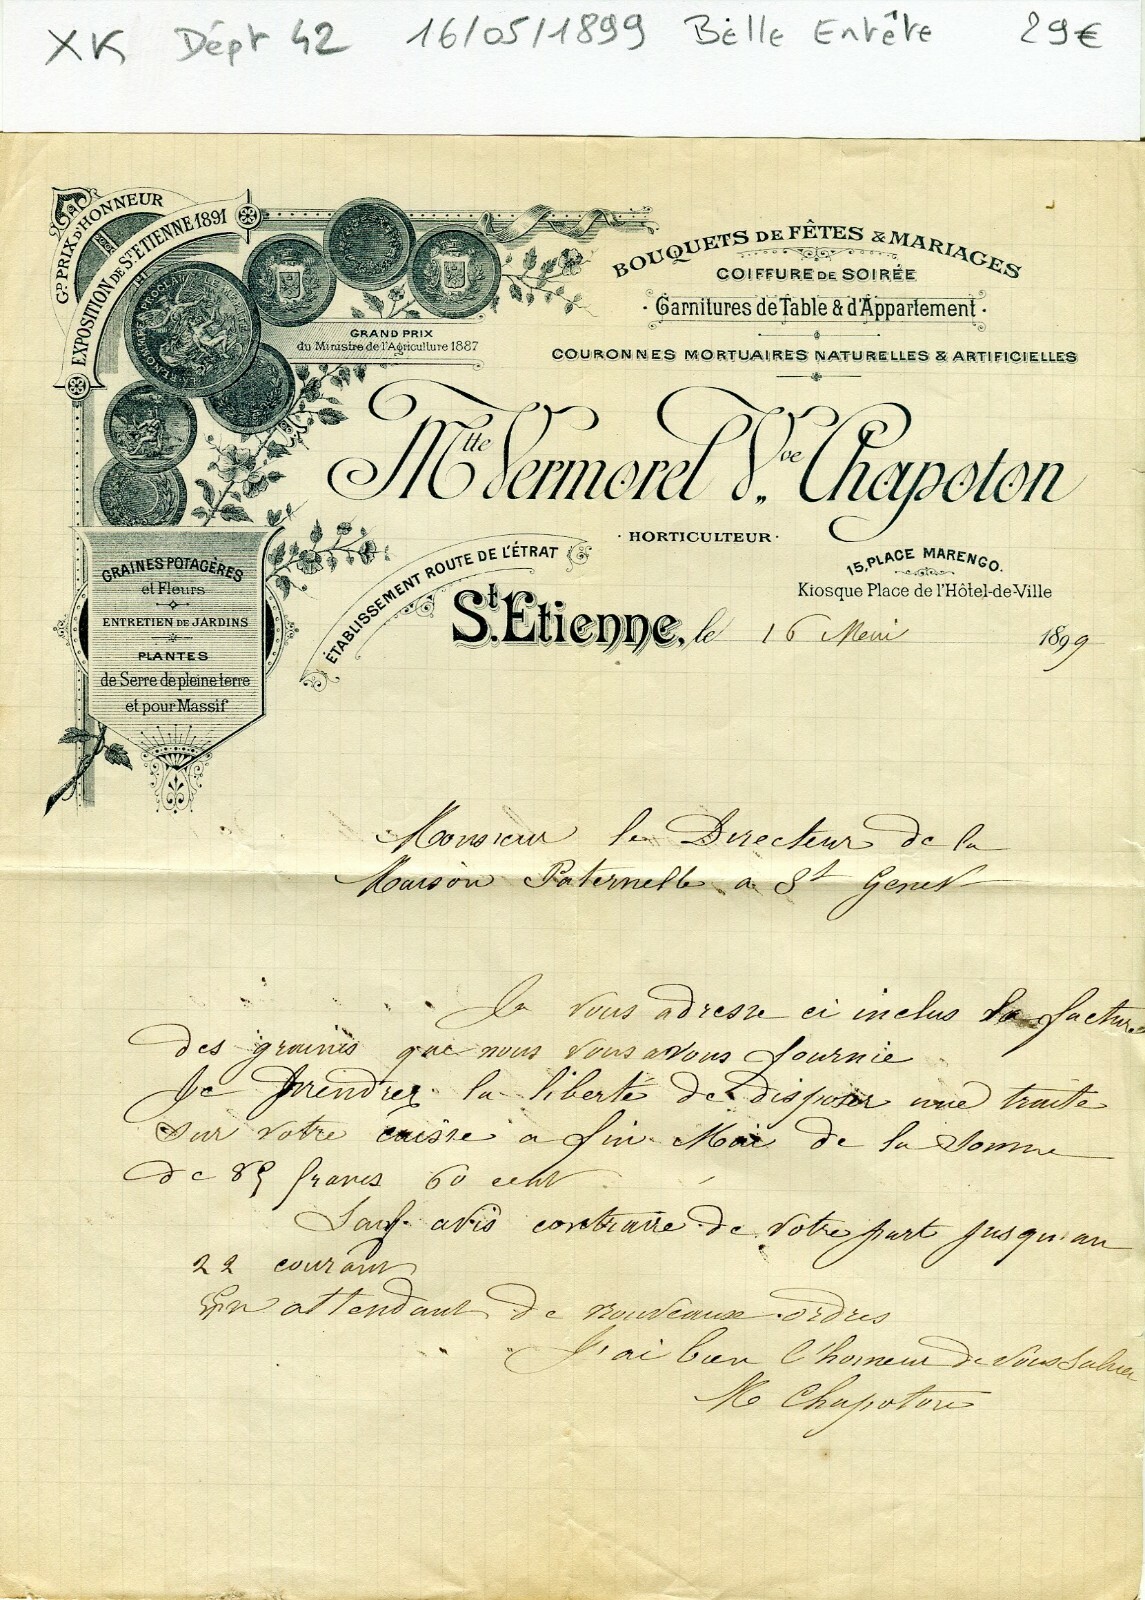 XK Dépt 42 16/05/1899 Belle Entête 29€
Gd PRIX D'HONNEUR
EXPOSITION DE St ETIENNE 1891
GRAND PRIX
du Ministre de l'Agriculture 1887
BOUQUETS DE FÊTES & MARIAGES
COIFFURE DE SOIRÉE
Garnitures de Table & d'Appartement
COURONNES MORTUAIRES NATURELLES & ARTIFICIELLES
Mtte Vermorel Vve Chapoton
HORTICULTEUR
15, PLACE MARENGO.
Kiosque Place de l'Hôtel-de-Ville
ÉTABLISSEMENT ROUTE DE L'ÉTRAT
St Etienne, le 16 Mai 1899
GRAINES POTAGÈRES
et Fleurs
ENTRETIEN DE JARDINS
PLANTES
de Serre de pleine terre
et pour Massif
Monsieur le Directeur de la
Maison Paternelle a St Genest
Je vous adresse ci inclus la facture
des graines que nous vous avons fournie
Je prendrez la liberté de disposer une traite
sur votre caisse a fin Mai de la somme
de 85 francs 60 cent
Sauf avis contraire de votre part jusqu'au
22 courant
En attendant de nouveaux ordres
J'ai bien l'honneur de vous saluer
M Chapoton